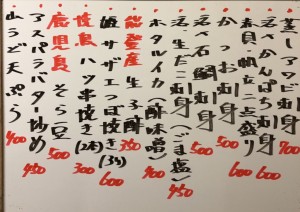 蒸しアワビ刺身 700
活〆かんぱち刺身 600
赤貝・帆立二点盛り 600
かつお刺身 500
活〆石鯛刺身 500
活・生だこ刺身(ごま塩) 450
ホタルイカ(酢味噌) 400
能登産 生子酢 350
姫サザエつぼ焼き(3ケ) 600
焼鳥ハツ串焼き(2本) 300
鹿児島 そら豆 500
アスパラバター炒め 450
山うど天ぷら 400